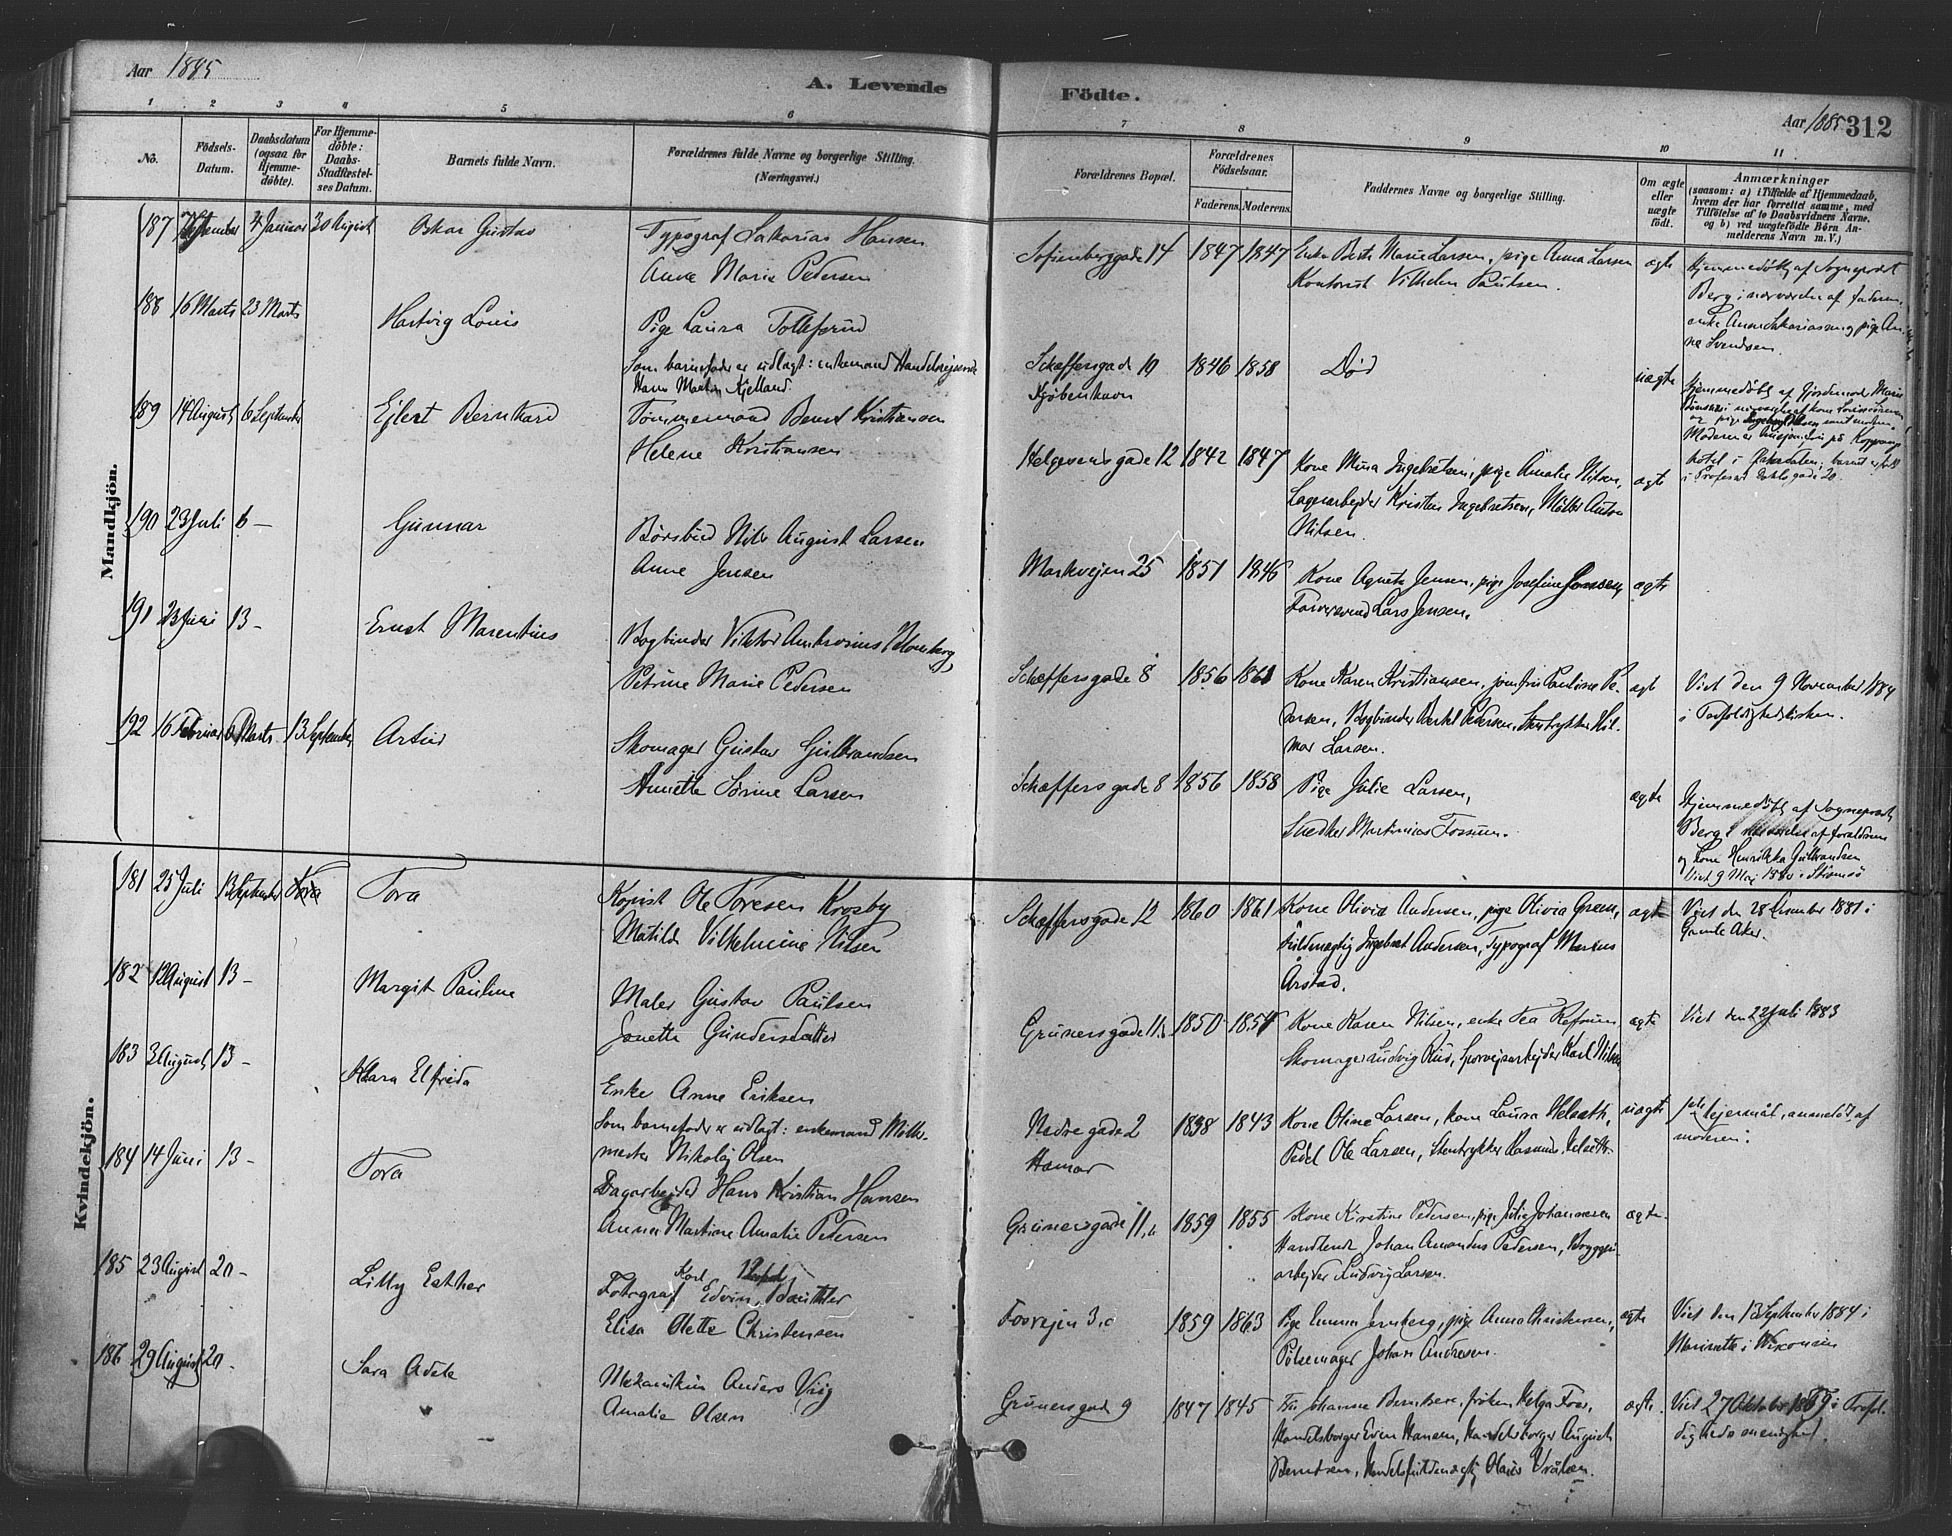 Aar 1885
A. Levende
1 2 3 4 5 6
No.
Födsels-
Datum.
Daabsdatum
(ogsaa for
Hjemme-
döbte).
For Hjemme-
döbte:
Daabs-
Stadfæstel-
ses Datum.
Barnets fulde Navn.
Forældrenes fulde Navne og borgerlige Stilling.
(Næringsvei.)
Mandkjön.
187 September Januar 30 August Oskar Gustav Typograf Sakarias Hansen
Anna Marie Pedersen
188 16 Marts 23 Marts Hartvig Louis Pige Laura Tollefsrud
Som barnefader er udlagt: enkemand Handelsrejsende
Hans Martin Kjelland.
189 14 August 6 September Ejlert Bernhard Tømmermand Bernt Kristiansen
Helene Kristiansen
190 23 Juli 6 - Gunnar Børsbud Nils August Larsen
Anne Jensen
191 23 Juni 13 - Ernst Marentius Bogbinder Viktor Ambrosius Holmberg,
Petrine Marie Pedersen
192 16 Februar Marts 13 September Artur Skomager Gustav Gulbrandsen
Annette Sørine Larsen
Kvindekjön.
181 25 Juli 13 September Tora Kopist Ole Toresen Krosby
Matilde Vilhelmine Nilsen
182 12 August 13 - Margit Pauline Maler Gustav Paulsen
Janette Gundersdatter
183 3 August 13 - Klara Elfrida Enke Anne Eriksen
Som barnefader er udlagt: enkemand
mester Nikolaj Olsen
184 14 Juni 13 - Tora Dagarbejder Hans Kristian Hansen
Anna Martine Amalie Pedersen
185 23 August 20 - Lilly Esther Karl
Fotograf Edvin
Elisa Olette Christensen
186 29 August 20 - Sara Adele Mekanikus Anders Viig
Amalie Olsen
Födte.
Aar 1885 312
7 8 9 10 11
Forældrenes Bopæl.
Forældrenes
Födselsaar.
Faderens. Moderens.
Faddernes Navne og borgerlige Stilling.
Om ægte
eller
uægte
födt.
Anmærkninger
(saasom: a) i Tilfælde af Hjemmedaab,
hvem der har forrettet samme, med
Tilföielse af to Daabsvidners Navne.
og b) ved uægtefödte Börn An-
melderens Navn m. V.)
Sofienberggade 14 1847 1847 Enke Marie Larsen, pige Anna Larsen ægte Hjemmedøbt af Sogneprest
Kontorist Vilhelm Paulsen. Berg i nærværelse af faderen,
enke Anne Sakariassen og pige An-
na Svendsen.
Schæffersgade 10 1846 1858 Død uægte Hjemmedøbt af Gjordemoder Marie
Kjøbenhavn
Helgesensgade 12 1842 1847 Kone Mina Ingebretsen, pige Amalie Nilsen, ægte
Lagerarbejder Kristian Ingebretsen, Møller Anton
Nilsen.
Markvejen 25 1851 1846 Kone Agnete Jensen, pige Josefine Jensen, ægte
Farversvend Lars Jensen.
Schæffersgade 8 1856 1861 Kone Karen Kristiansen, jomfru Pauline Pe- ægt Viet den 9 November 1884
dersen, Bogbinder Bertel Pedersen, Stentrykker Hil- i Trefoldighedskirken.
mar Larsen.
Schæffersgade 8 1856 1858 Pige Julie Larsen, ægte Hjemmedøbt af Sogneprest
Snedker Martinius Fossum. Berg i nærværelse af forældrene
og Kone Henrikka Gulbrandsen
Viet 9 Maj i Strømsø
Schæffersgade 12 1860 1861 Kone Olivia Andersen, pige Olivia Green, ægte Viet den 28 December 1881 i
Fuldmægtig Ingebret Andersen, Typograf Marius Gamle Aker.
Årstad.
Grünersgade 11 1850 1854 Kone Karen Nilsen, enke Tea Refsum ægte Viet den 22 Juli 1883
Skomager Ludvig Rud, Sporvejsarbejder Karl Nilsen
Nedregade 2 1838 1843 Kone Oline Larsen, kone Laura Helseth, uægte 1ste lejermål, anmeldt af
Hamar Pedel Ole Larsen, Stentrykker Rasmus Helseth. moderen.
Grünersgade 11,a 1859 1855 Kone Kirstine Pedersen, pige Julie Johannesen ægte
Handlende Johan Amandus Pedersen, Bryggeri-
arbejder Ludvig Larsen.
Fosvejen 3,c 1859 1863 Pige Emma Jernberg, pige Anna Christensen, ægte Viet den 13 September 1884 i
Pølsemager Johan Andresen. Marinette i Wisconsin
Grünersgade 9 1847 1845 Fru Johanne Berntsen, frøken Helga Foss, ægte Viet 27 Oktober 1869 i Trefol-
Handelsborger Even Hansen, Handelsborger August dighedsmenighed.
Berntsen, Handelsfuldmægtig